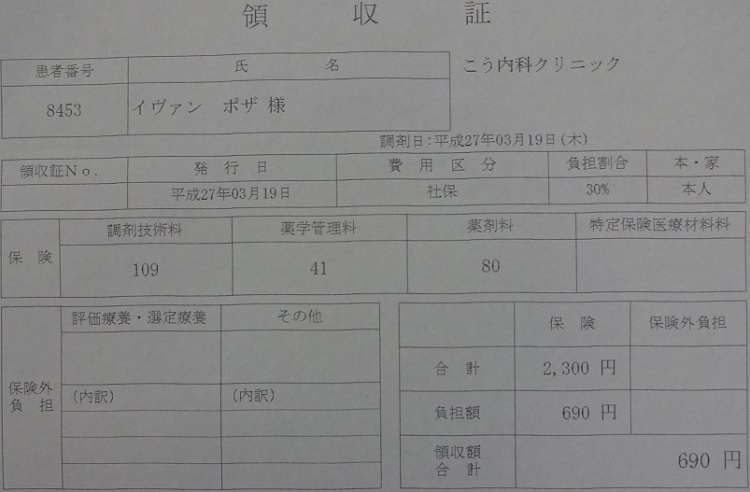 領収証
患者番号 氏名 こう内科クリニック
8453 イヴァン ポザ 様
調剤日:平成27年03月19日(木)
領収証No. 発行日 費用区分 負担割合 本・家
平成27年03月19日 社保 30% 本人
保険 調剤技術料 薬学管理料 薬剤料 特定保険医療材料料
109 41 80
保険外
負担
評価療養・選定療養 その他
(内訳) (内訳)
保険 保険外負担
合計 2,300 円
負担額 690 円
領収額
合計
690 円